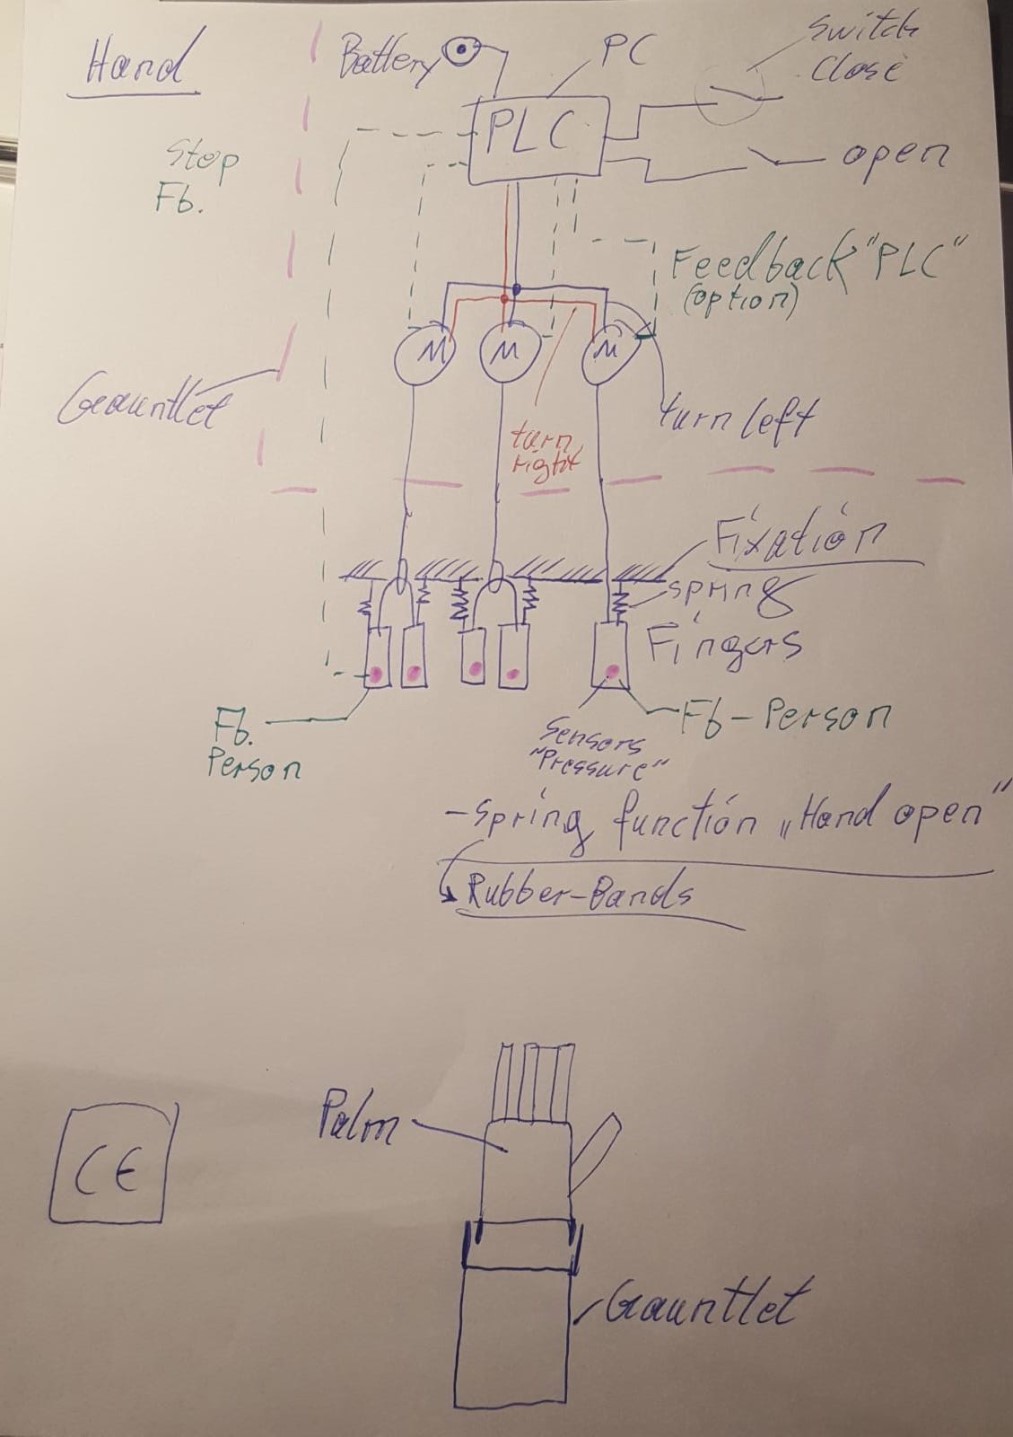 Hand
Battery
PC
Switch
Close
PLC
open
Stop
Fb.
Feedback "PLC"
(option)
M
M
M
Gauntlet
turn left
turn
right
Fixation
spring
Fingers
Fb.
Person
Fb-Person
Sensors
"Pressure"
-Spring function „Hand open"
Rubber-Bands
Palm
CE
Gauntlet